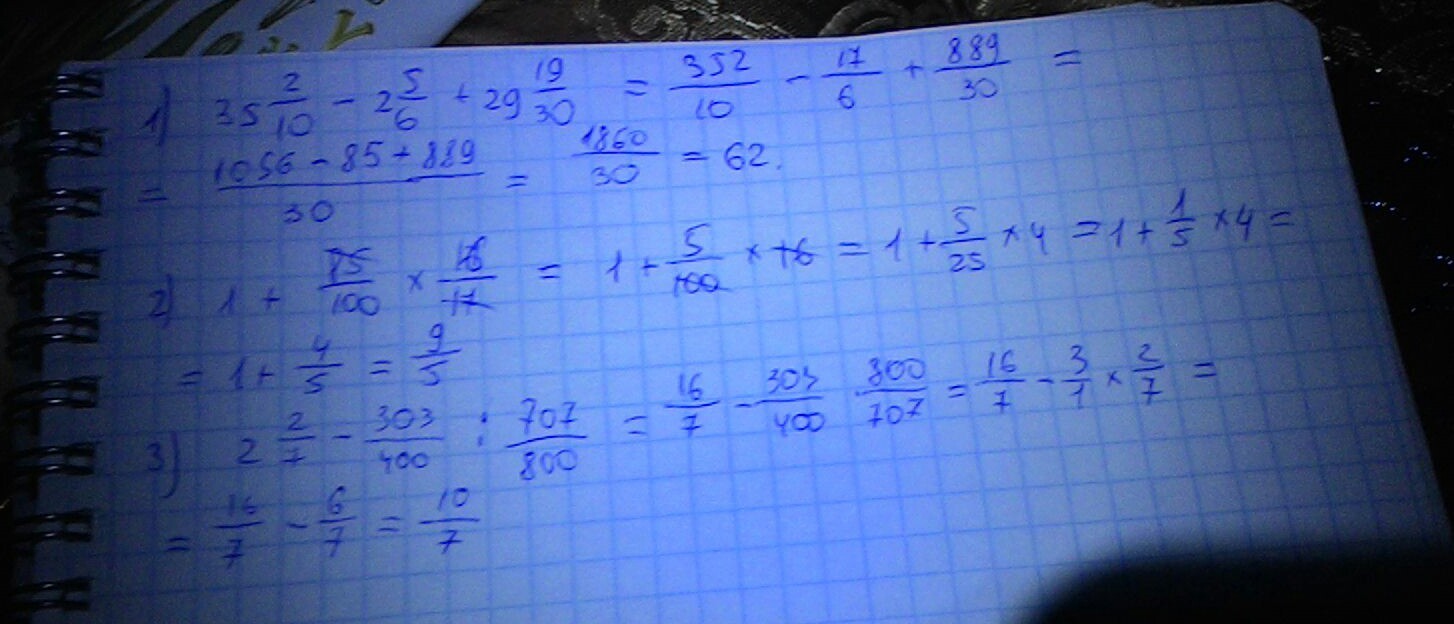 1) 35 2/10 - 2 5/6 + 29 19/30 = 352/10 - 17/6 + 889/30 =
= (1056 - 85 + 889)/30 = 1860/30 = 62.
2) 1 + 85/100 × 16/17 = 1 + 5/100 × 16 = 1 + 5/25 × 4 = 1 + 1/5 × 4 =
= 1 + 4/5 = 9/5
3) 2 2/7 - 303/400 : 707/800 = 16/7 - 303/400 · 800/707 = 16/7 - 3/1 × 2/7 =
= 16/7 - 6/7 = 10/7